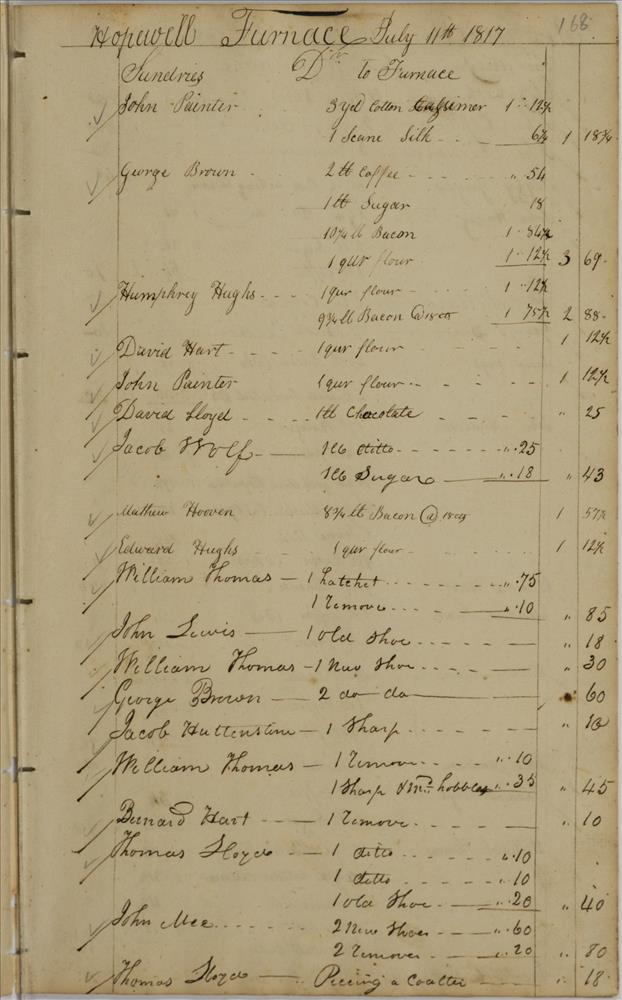 168
Hopewell Furnace July 11th 1817
Sundries Drs to Furnace
John Painter 3 yd Cotton Cassimer 1 " 12½
1 Scane Silk 6¼ 1 18¾
George Brown 2 lb Coffee " 54
1 lb Sugar 18
10¼ lb Bacon 1 84½
1 qur flour 1 " 12½ 3 69
Humphrey Hughs 1 qur flour 1 12½
9¾ lb Bacon @ 18 cts 1 75½ 2 88
David Hart 1 qur flour 1 12½
John Painter 1 qur flour 1 12½
David Lloyd 1 lb Chocolate " 25
Jacob Wolf 1 lb ditto " 25
1 lb Sugar " 18 " 43
Mathew Hooven 8¾ lb Bacon @ 18 cts 1 57½
Edward Hughs 1 qur flour 1 12½
William Thomas 1 hatchet " 75
1 Remove " 10 " 85
John Lewis 1 old Shoe " 18
William Thomas 1 New Shoe " 30
George Brown 2 do do 60
Jacob Huttenstine 1 Sharp " 10
William Thomas 1 Remove " 10
1 Sharp & hobbles " 35 " 45
Bernard Hart 1 Remove " 10
Thomas Lloyd 1 ditto " 10
1 ditto " 10
1 old Shoe " 20 " 40
John Mee 2 New Shoes " 60
2 Removes " 20 " 80
Thomas Lloyd Piecing a Coalter " 18